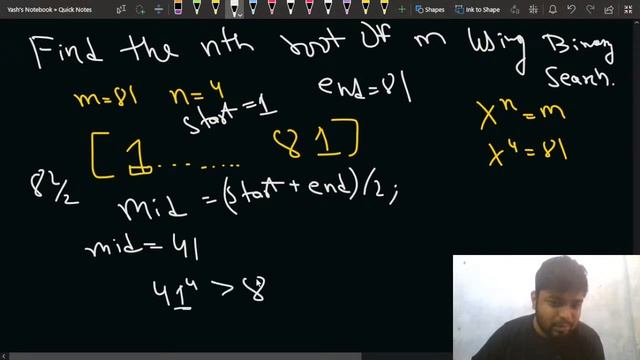 Yash's Notebook • Quick Notes
Shapes
Ink to Shape
Find the nth root of m Using Binary Search.
m=81 n=4 end=81
start=1
x^n=m
[1........ 81]
x^4=81
82/2
mid =(start+end)/2;
mid=41
41^4>8